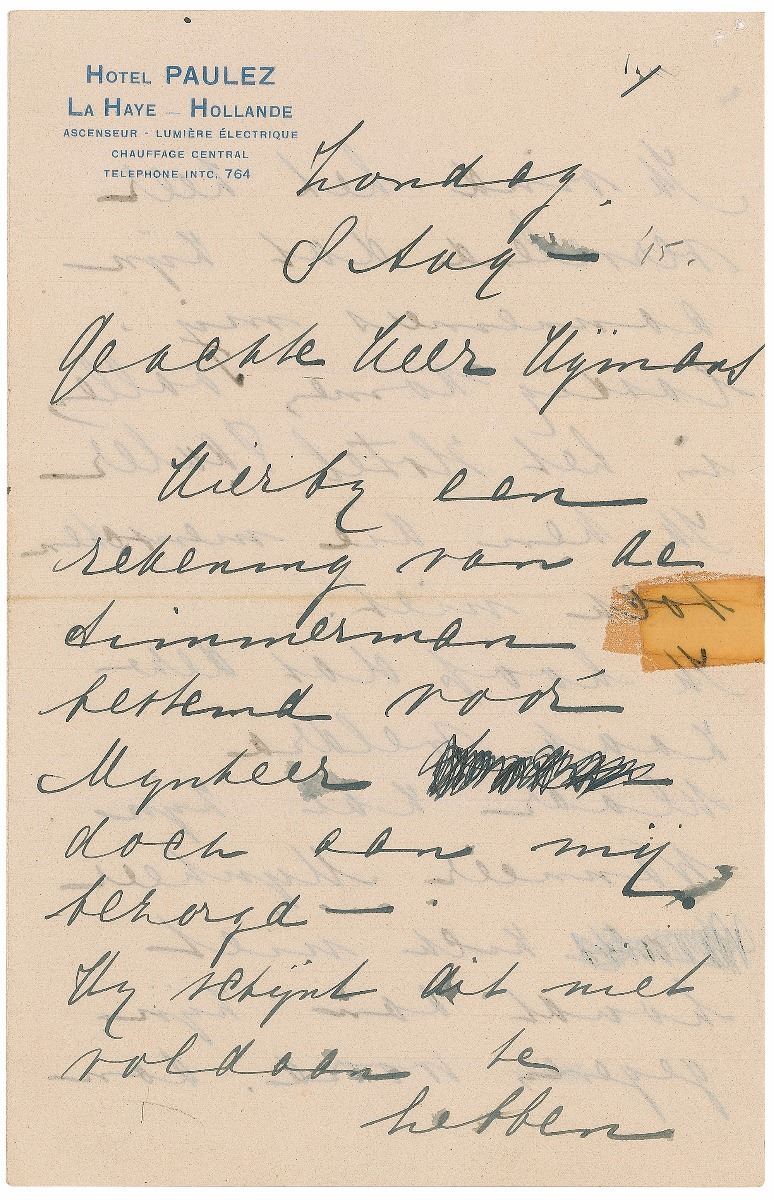 HOTEL PAULEZ
LA HAYE – HOLLANDE
ASCENSEUR - LUMIÈRE ÉLECTRIQUE
CHAUFFAGE CENTRAL
TELEPHONE INTC. 764
Zondag.
8 Aug — '15.
Geachte Heer Hymans
Hierby een
rekening van de
timmerman
bestemd voor
Mynheer
doch aan mij.
bezorgd — .
Hy schijnt dit niet
voldaan te
hebben